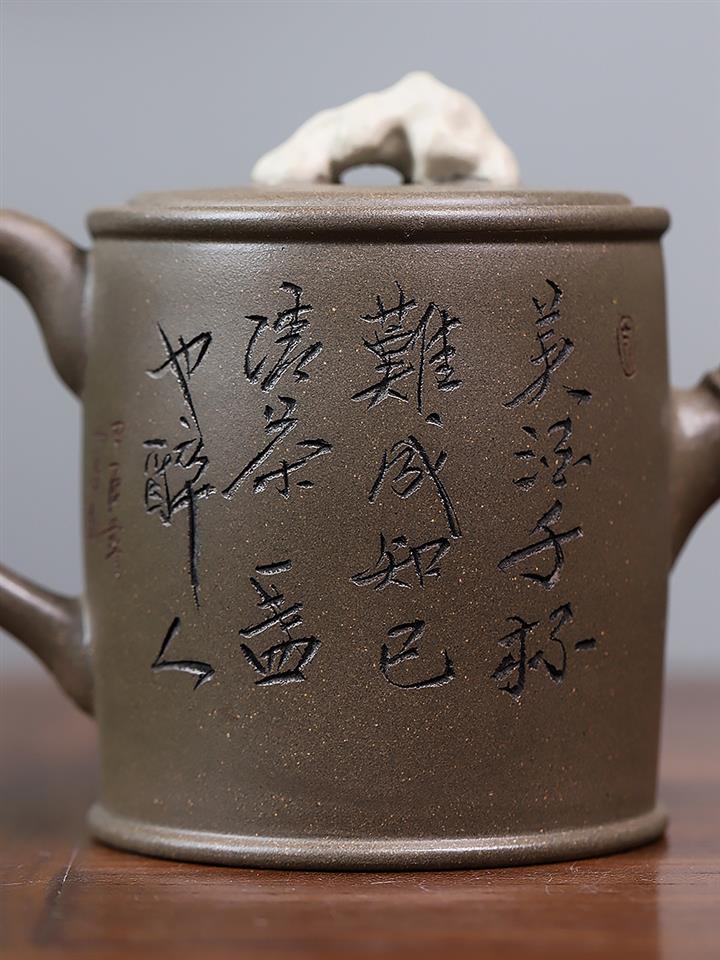 美酒千杯
難成知己
清茶一盞
也醉人